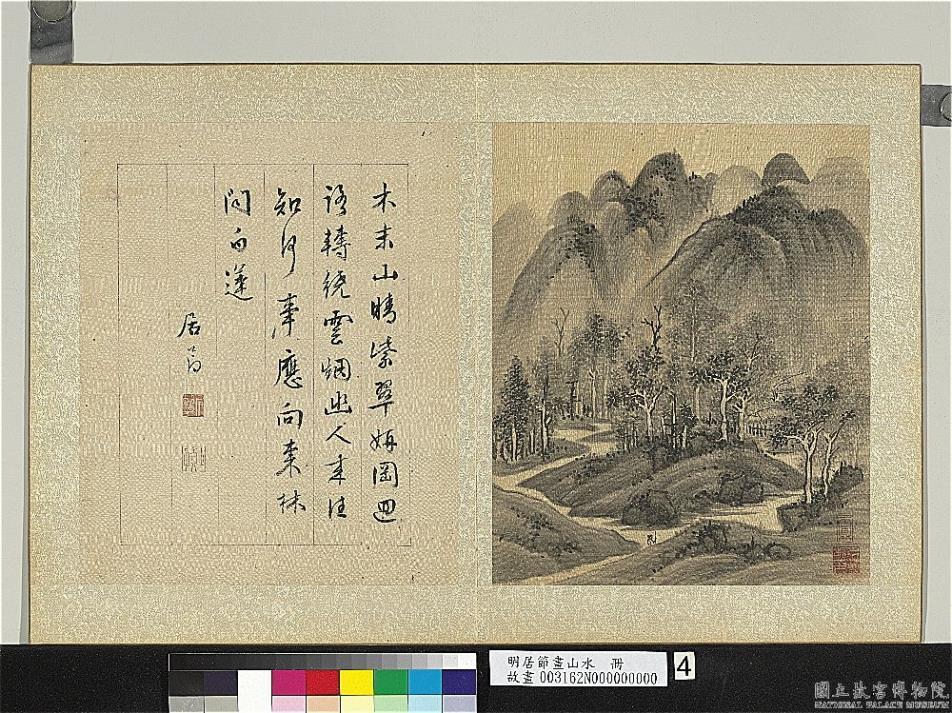 木末山晴紫翠妍岡迴
路轉繞雲烟幽人來往
知何事應向東林
問白蓮
居節
明居節畫山水 冊
故畫003162N000000000
4
國立故宮博物院
NATIONAL PALACE MUSEUM